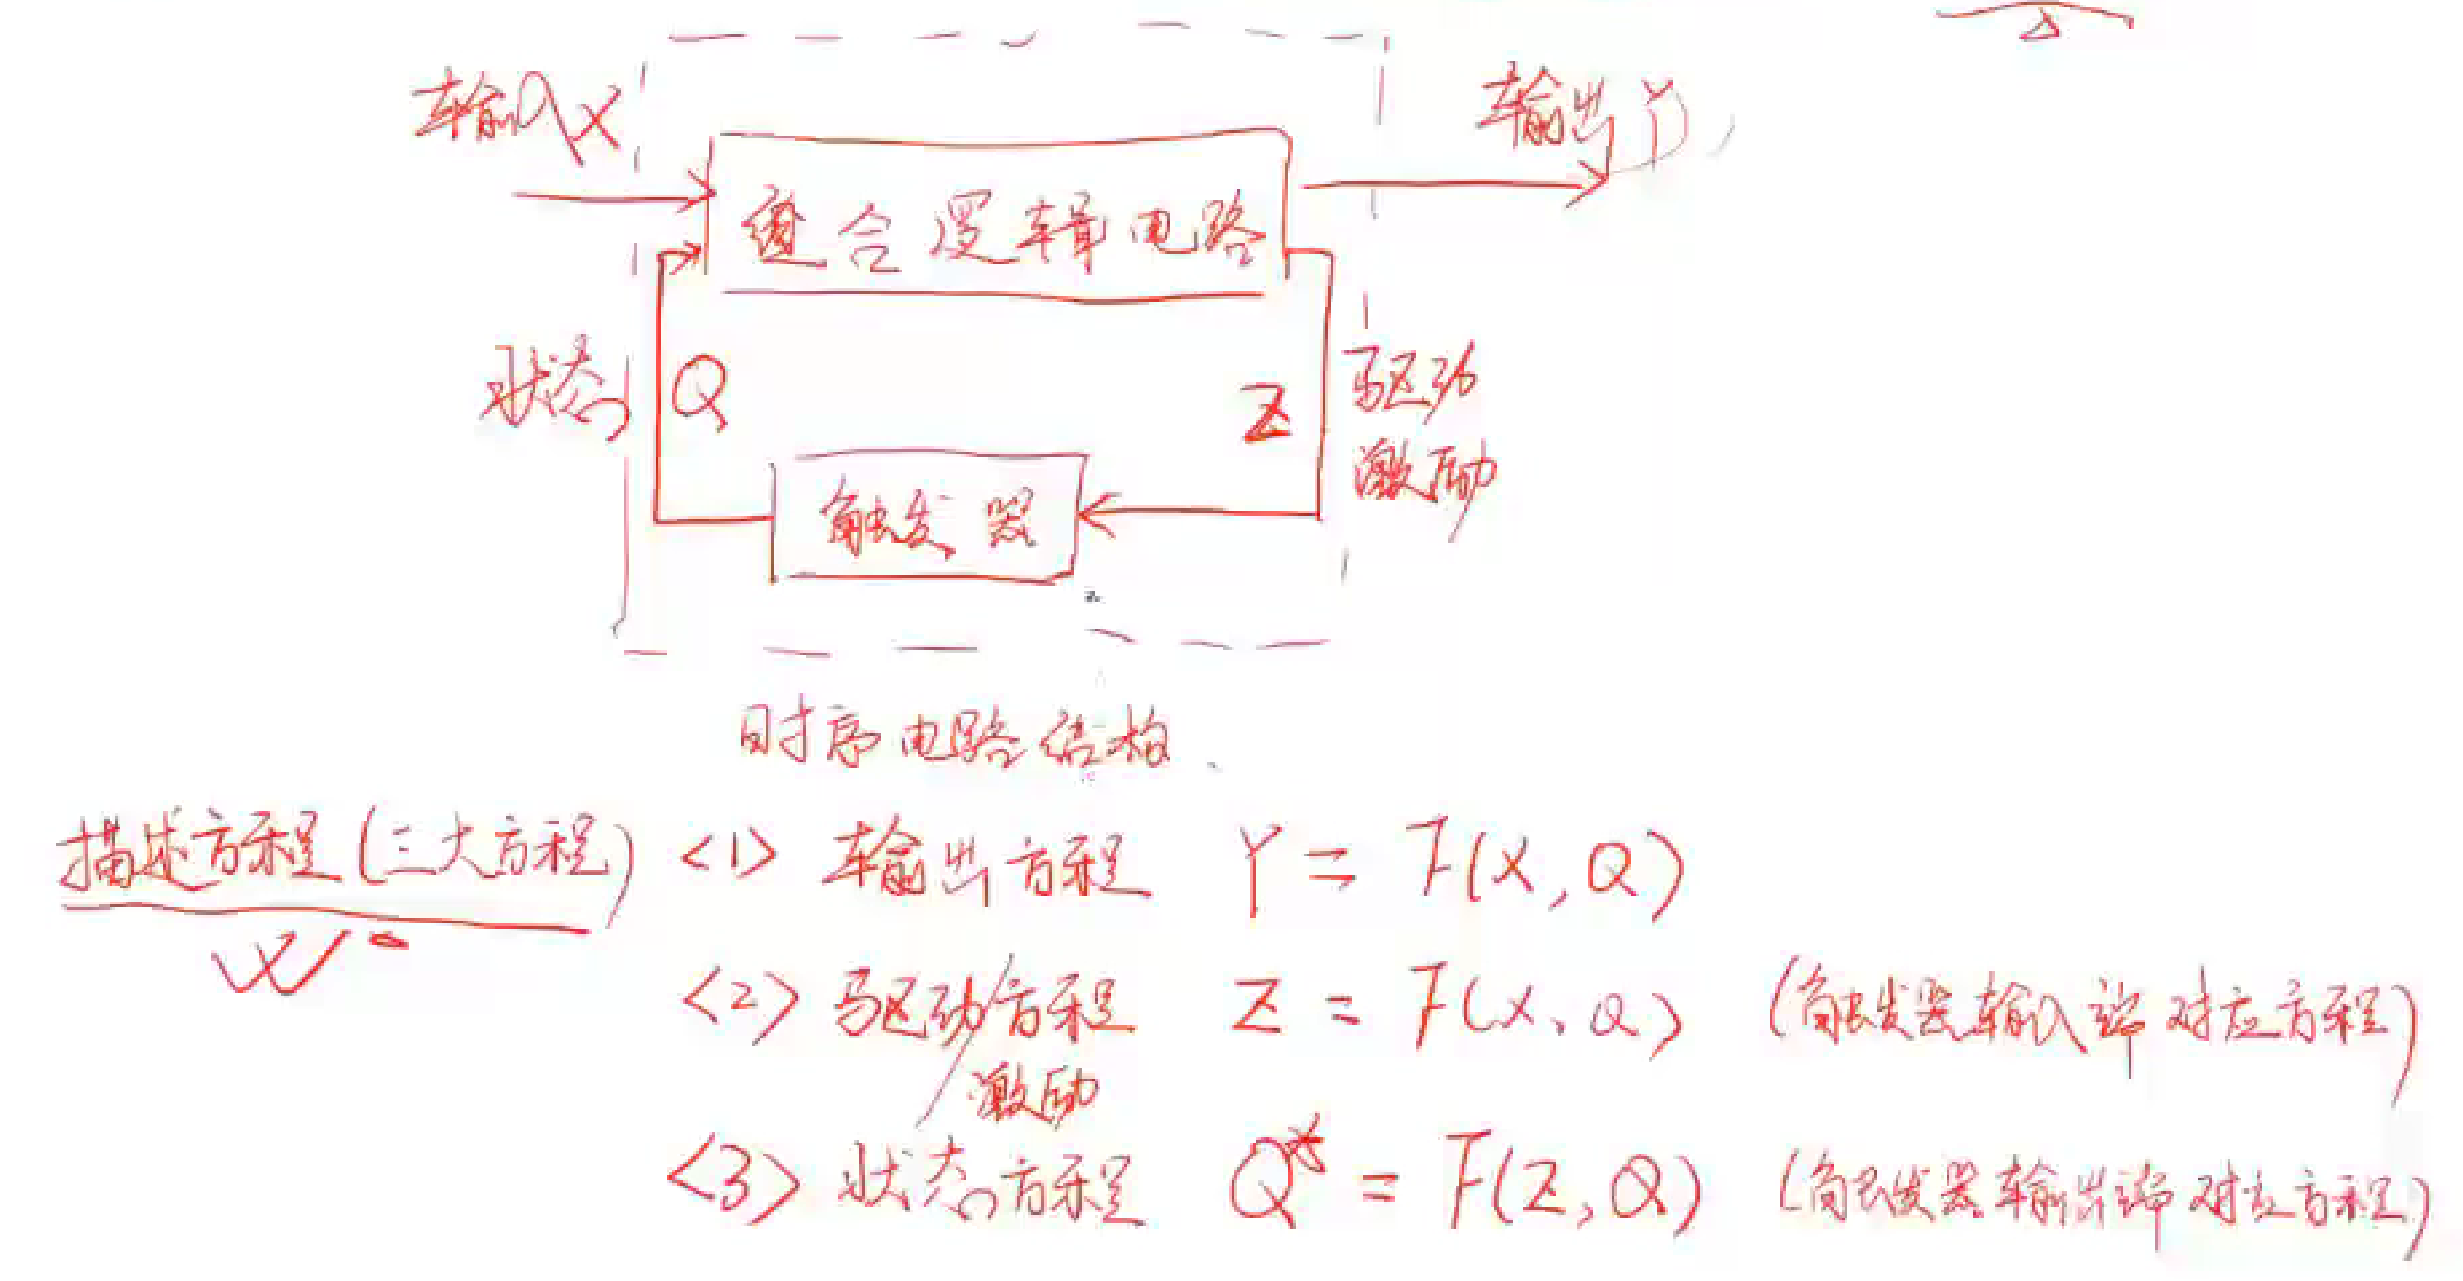 输入X
输出Y
组合逻辑电路
状态 Q
Z 驱动
激励
触发器
时序电路结构
描述方程(三大方程) <1> 输出方程 Y = F(X, Q)
<2> 驱动/方程 Z = F(X, Q) (触发器输入端对应方程)
激励
<3> 状态方程 Q* = F(Z, Q) (触发器输出端对应方程)